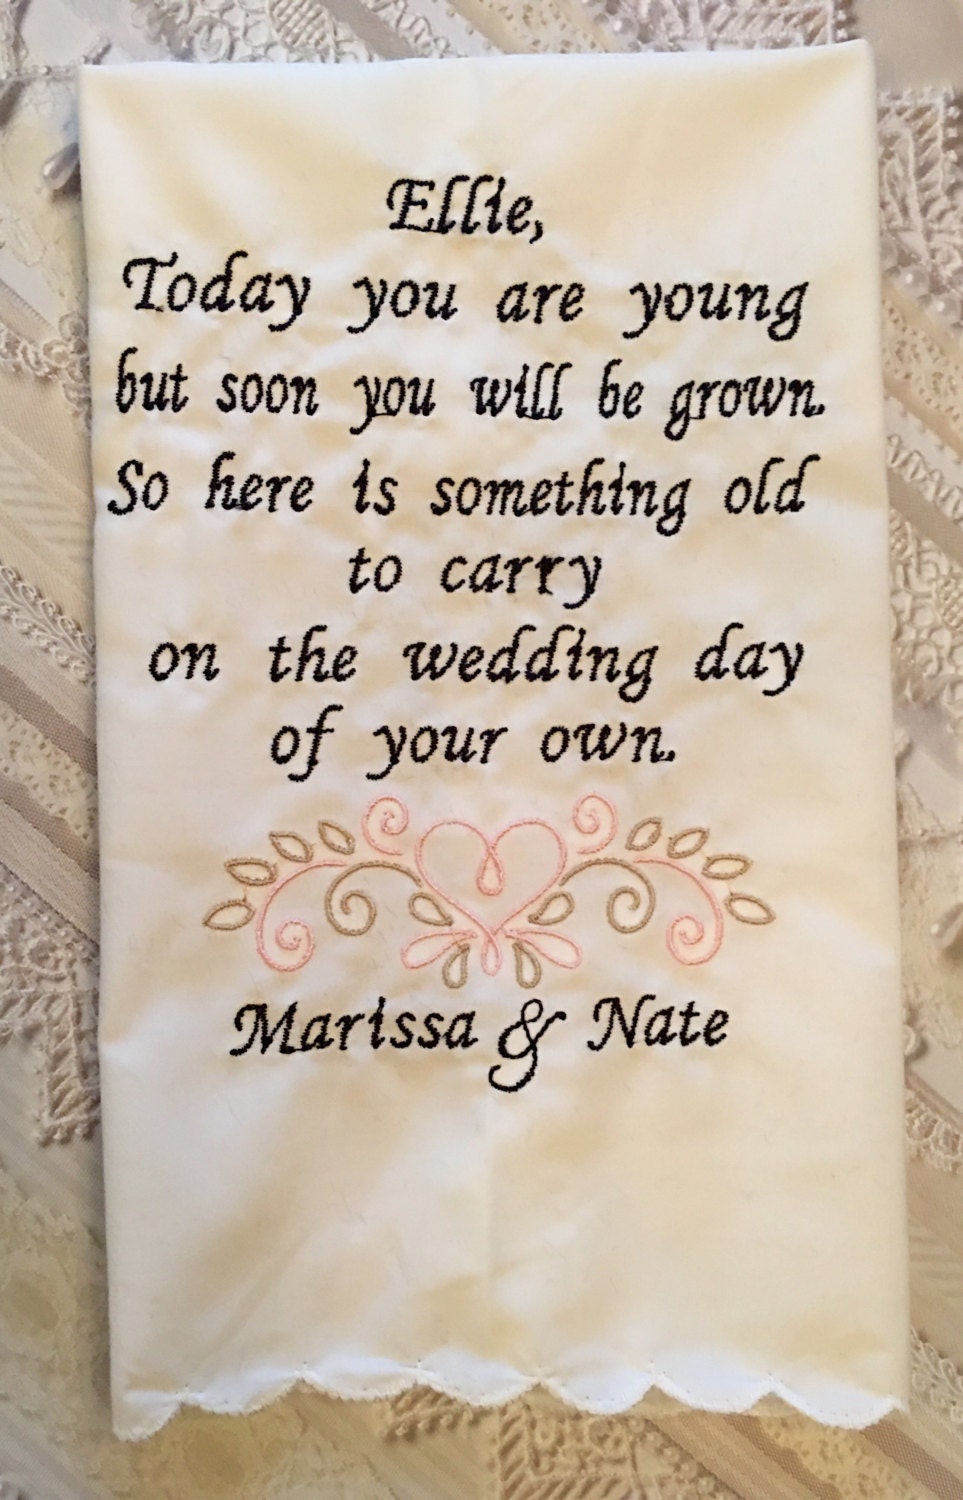 Ellie,
Today you are young
but soon you will be grown.
So here is something old
to carry
on the wedding day
of your own.
Marissa & Nate